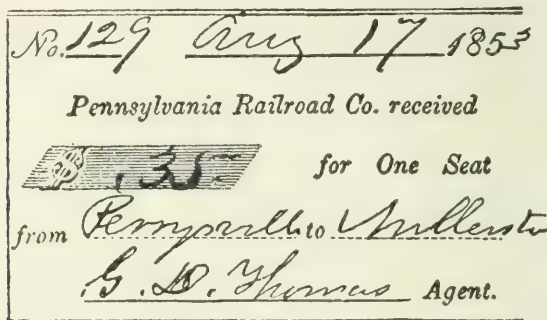 No. 129 Aug 17 1853
Pennsylvania Railroad Co. received
$ .35 for One Seat
from Perrysville to Millersto
G. D. Thomas Agent.